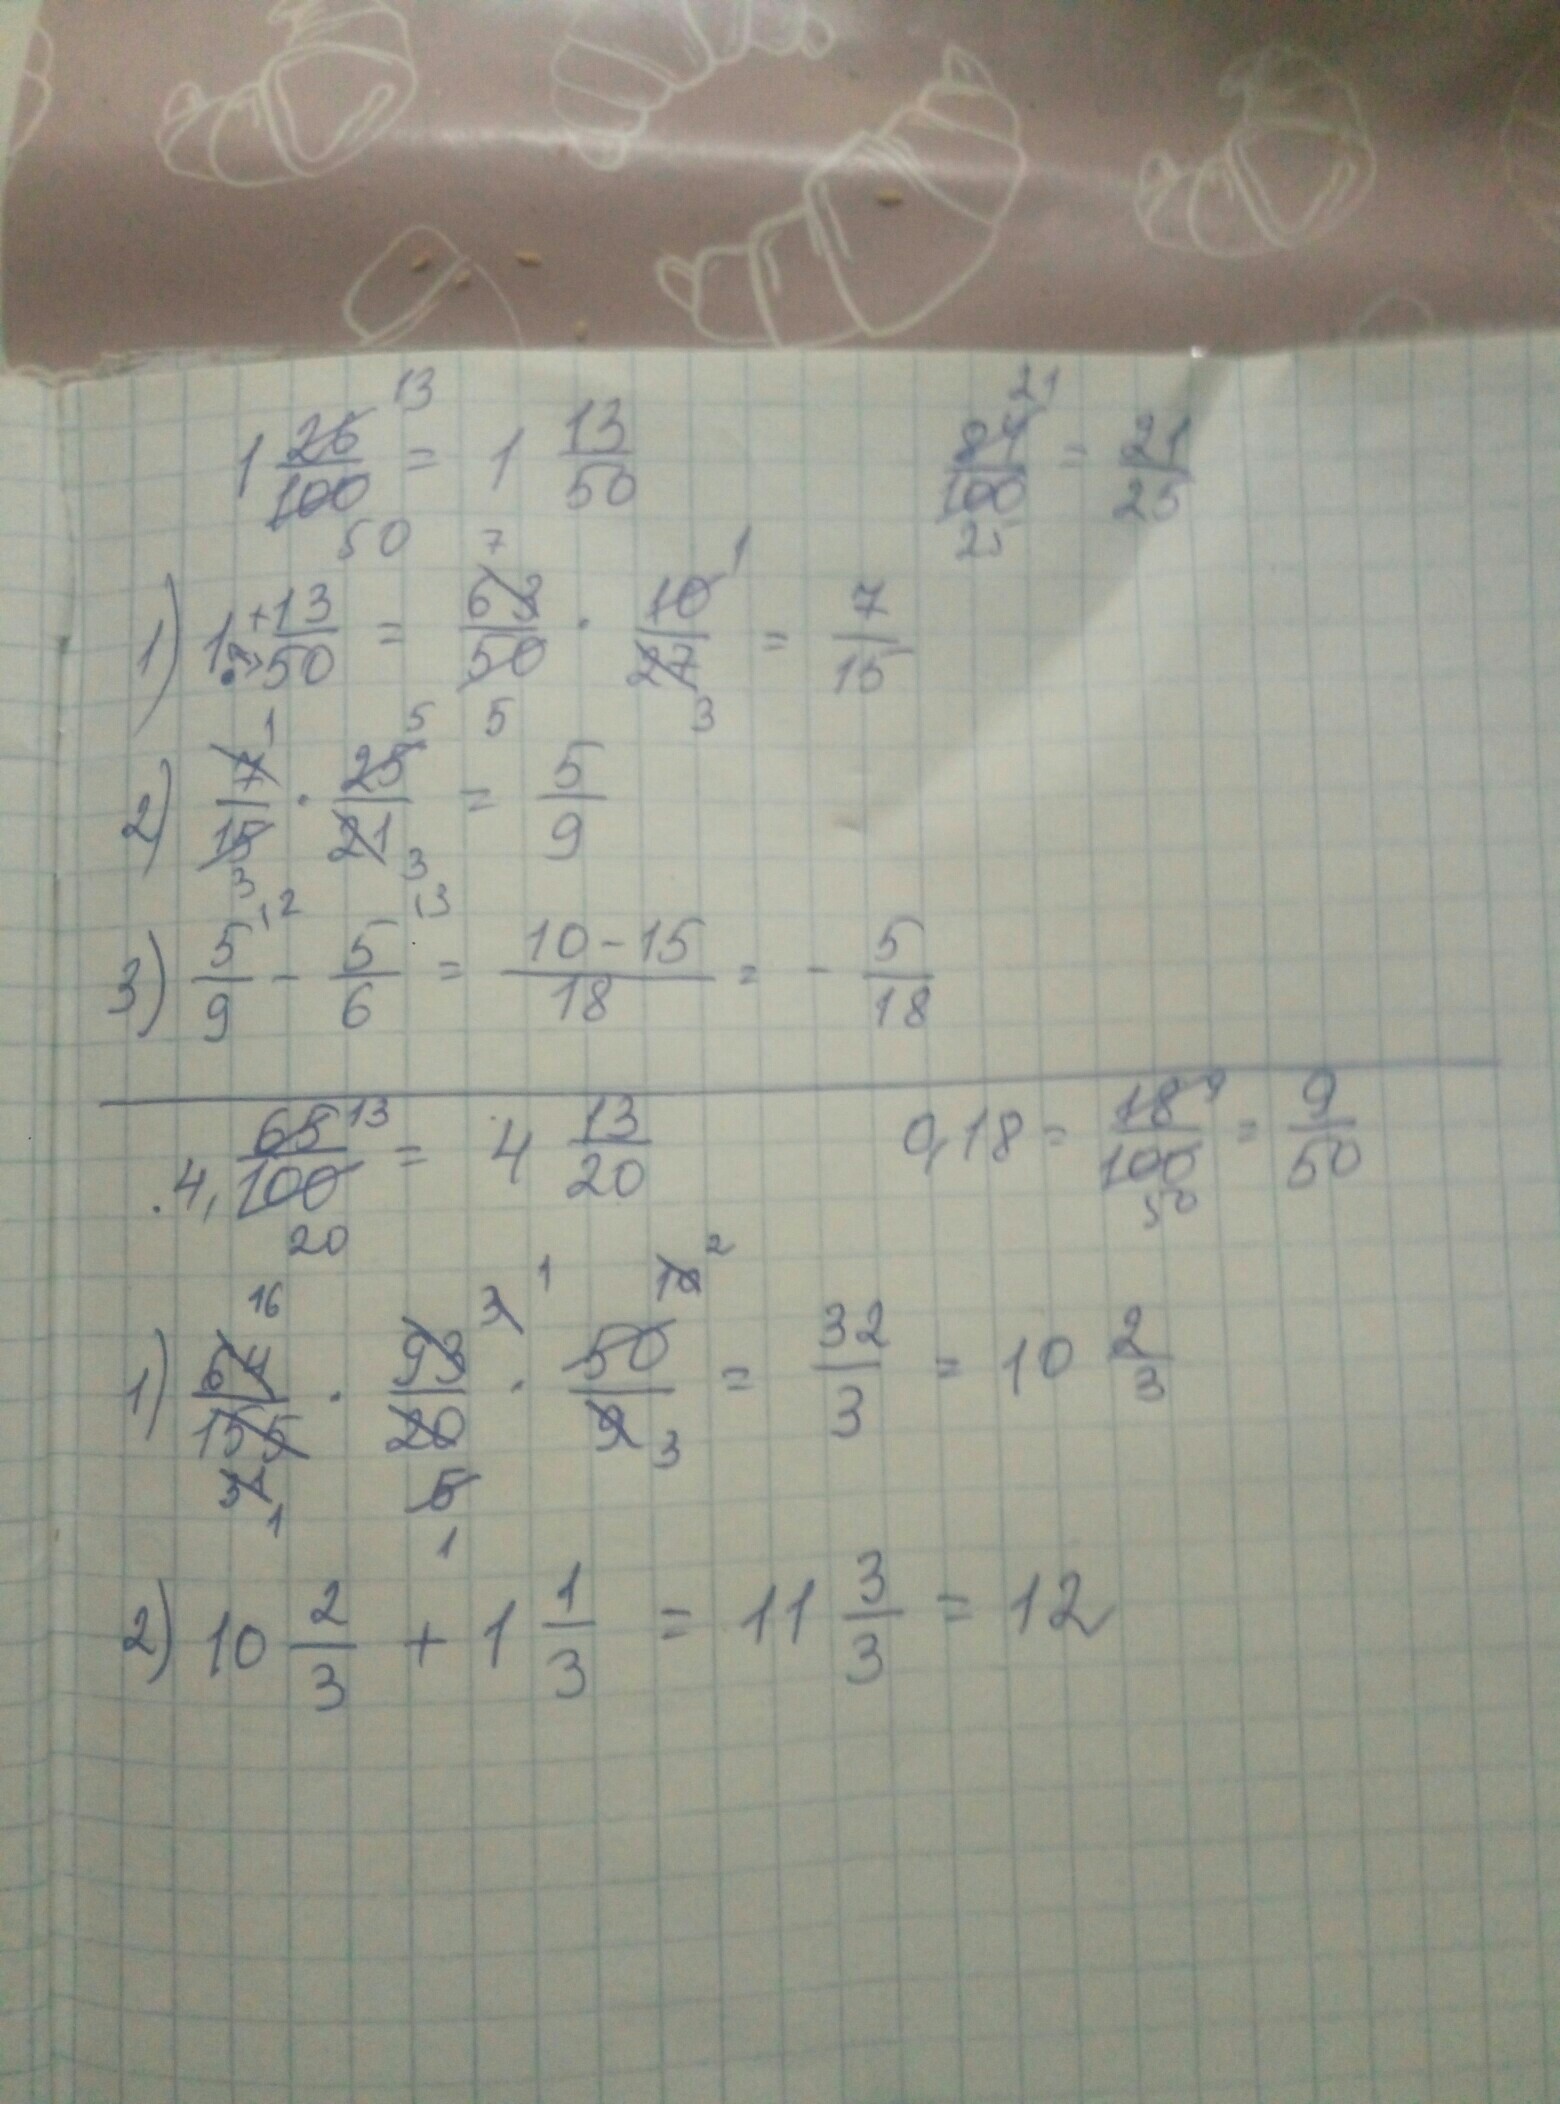 1 26/100 13 50 = 1 13/50   84/100 21 25 = 21/25
1) 1 + 13/50 = 63/50 7 5 · 10/27 1 3 = 7/15
2) 7/15 1 3 · 25/21 5 3 = 5/9
3) 5/9 12 - 5/6 13 = 10-15/18 = - 5/18
.4, 65/100 13 20 = 4 13/20   0,18 = 18/100 9 50 = 9/50
1) 64/155 16 31 1 · 93/20 3 1 5 1 · 50/9 10 2 3 = 32/3 = 10 2/3
2) 10 2/3 + 1 1/3 = 11 3/3 = 12